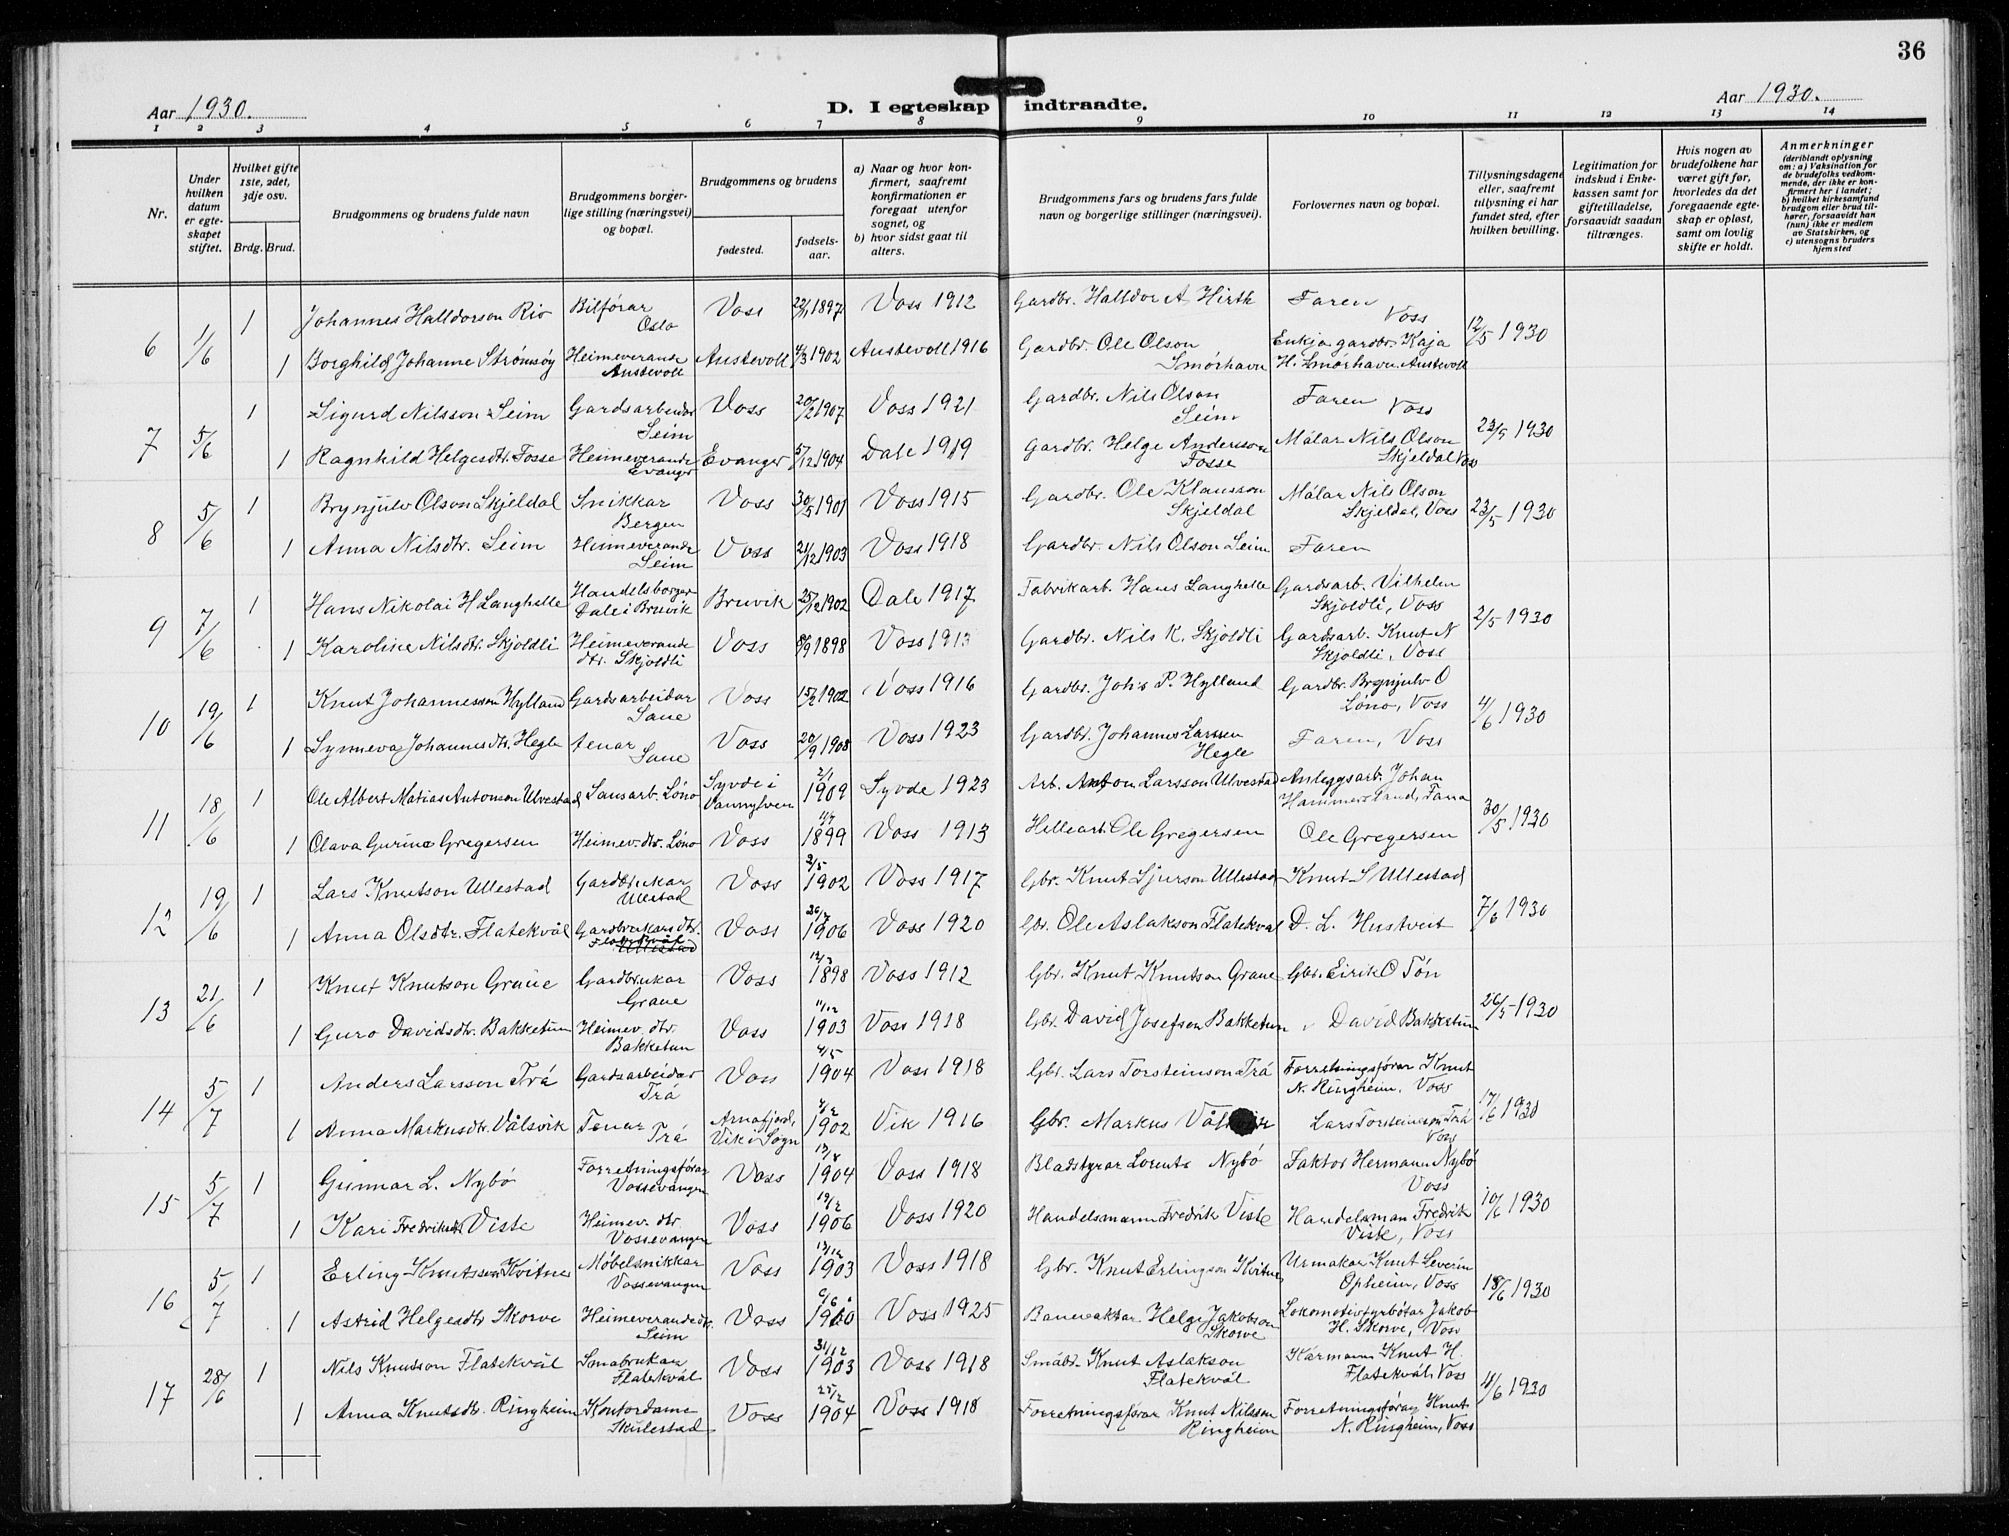 36
Aar 1930.
D. I egteskap indtraadte.
Aar 1930.
1 2 3 4 5 6 7 8 9 10 11 12 13 14
Nr.
Under hvilken datum er egteskapet stiftet.
Hvilket gifte 1ste, 2det, 3dje osv.
Brdg. Brud.
Brudgommens og brudens fulde navn
Brudgommens borgerlige stilling (næringsvei) og bopæl.
Brudgommens og brudens
fødested.
fødselsaar.
a) Naar og hvor konfirmert, saafremt konfirmationen er foregaat utenfor sognet, og
b) hvor sidst gaat til alters.
Brudgommens fars og brudens fars fulde navn og borgerlige stillinger (næringsvei).
Forlovernes navn og bopæl.
Tillysningsdagene eller, saafremt tillysning ei har fundet sted, efter hvilken bevilling.
Legitimation for indskud i Enkekassen samt for giftetilladelse, forsaavidt saadan tiltrænges.
Hvis nogen av brudefolkene har været gift før, hvorledes da det foregaaende egteskap er opløst, samt om lovlig skifte er holdt.
Anmerkninger
(deriblandt oplysning om: a) Vaksination for de brudefolks vedkommende, der ikke er konfirmert her i landet; b) hvilket kirkesamfund brudgom eller brud tilhører, forsaavidt han (hun) ikke er medlem av Statskirken, og c) utensogns bruders hjemsted
6 1/6 1 Johannes Halldorson Rio Bilførar Oslo Voss 22/1 1897 Voss 1912 Gardbr. Halldor A. Hirth Faren Voss 12/5 1930
1 Borghild Johanne Strømsøy Heimeverande Austevoll Austevoll 4/3 1902 Austevoll 1916 Gardbr. Ole Olson Smørhavn Enkja gardbr. Kaja H. Smørhavn. Austevoll
7 5/6 1 Sigurd Nilsson Seim Gardsarbeidar Seim Voss 20/2 1907 Voss 1921 Gardbr. Nils Olson Seim Faren Voss 23/5 1930
1 Ragnhild Helgesdtr. Fosse Heimeverande Evanger Evanger 5/12 1904 Dale 1919 Gardbr. Helge Anderson Fosse Målar Nils Olson Skjeldal Voss
8 5/6 1 Brynjulv Olson Skjeldal Snikkar Bergen Voss 30/5 1901 Voss 1915 Gardbr. Ole Klausson Skjeldal Målar Nils Olson Skjeldal, Voss 23/5 1930
1 Anna Nilsdtr. Seim Heimeverande Seim Voss 21/12 1903 Voss 1918 Gardbr. Nils Olson Seim Faren
9 7/6 1 Hans Nikolai H Langhelle Handelsborger Dale i Bruvik Bruvik 25/12 1902 Dale 1917 Fabrikarb. Hans Langhelle Gardsarb. Vilhelm Skjoldli, Voss 2/5 1930
1 Karoline Nilsdtr. Skjoldli Heimeverande dtr. Skjoldli Voss 8/9 1898 Voss 1913 Gardbr. Nils K. Skjoldli Gardsarb. Knut N Skjoldli, Voss
10 19/6 1 Knut Johannesson Hylland Gardsarbeidar Saue Voss 15/2 1902 Voss 1916 Gardbr. Johs P. Hylland Gardbr. Brynjulv O Lóno, Voss 4/6 1930
1 Synneva Johannesdtr. Hegle tenar Saue Voss 20/9 1908 Voss 1923 Gardbr. Johannes Larssen Hegle Faren, Voss
11 18/6 1 Ole Albert Matias Antonson Ulvestad Lausarb. Lóno Syvde i Vannylven 2/1 1909 Syvde 1923 Arb. Anton Larsson Ulvestad Anleggsarb. Johan Hammersland, Fana 30/5 1930
1 Olava Gurine Gregersen Heimev. dtr. Lóno Voss 1899 Voss 1913 Hellearb. Ole Gregersen Ole Gregersen
12 19/6 1 Lars Knutson Ullestad Gardbrukar Ullestad Voss 2/5 1902 Voss 1917 Gbr. Knut Sjurson Ullestad Knut S Ullestad 7/6 1930
1 Anna Olsdtr. Flatekvål Gardbrukars dtr. Flatekvål Voss 1906 Voss 1920 Gbr. Ole Aslakson Flatekvål D. L. Hustveit
13 21/6 1 Knut Knutson Graue Gardbrukar Graue Voss 1898 Voss 1912 Gbr. Knut Knutson Graue Gbr. Eirik O Tón 26/5 1930
1 Guro Davidsdtr. Bakketun Heimev. dtr. Bakketun Voss 11/12 1903 Voss 1918 Gbr. David Josefson Bakketun David Bakketun
14 5/7 1 Anders Larsson Trå Gardsarbeidar Trå Voss 4/5 1904 Voss 1918 Gbr. Lars Torsteinson Trå Forretningsførar Knut N. Ringheim, Voss 17/6 1930
1 Anna Markusdtr. Vålsvik Tenar Trå Arnafjord, Vik i Sogn 4/2 1902 Vik 1916 Gbr. Markus Lars Torsteinson Trå Voss
15 5/7 1 Gunnar L. Nybó Forretningsførar Vossevangen Voss 13/8 1904 Voss 1918 Bladstyrar Lorents Nybó Faktor Hermann Nybó Voss 10/6 1930
1 Kari Fredriksdtr Viste Heimev. dtr. Vossevangen Voss 19/2 1906 Voss 1920 Handelsmann Fredrik Viste Handelsman Fredrik Viste, Voss
16 5/7 1 Erling Knutsson Kvitne Møbelsnikkar Vossevangen Voss 13/12 1903 Voss 1918 Gbr. Knut Erlingson Kvitne Urmakar Knut Severin Opheim, Voss 18/6 1930
1 Astrid Helgesdtr Skorve Heimeverande dtr. Seim Voss 6/6 1910 Voss 1925 Banevaktar Helge Jakobson Skorve Lokomotivfyrbøtar Jakob H. Skorve, Voss
17 28/6 1 Nils Knutson Flatekvål Småbrukar Flatekvål Voss 31/12 1903 Voss 1918 Småbr. Knut Aslakson Flatekvål Kårmann Knut H. Flatekvål, Voss 11/6 1930
1 Anna Knutsdtr. Ringheim Kontordame Skulestad Voss 25/2 1904 Voss 1918 Forretningsførar Knut Nilsson Ringheim Forretningsførar Knut N. Ringheim, Voss